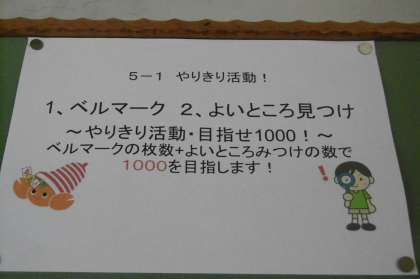 5-1 やりきり活動!
1、ベルマーク 2、よいところ見つけ
~やりきり活動・目指せ1000!~
ベルマークの枚数+よいところみつけの数で
1000を目指します!